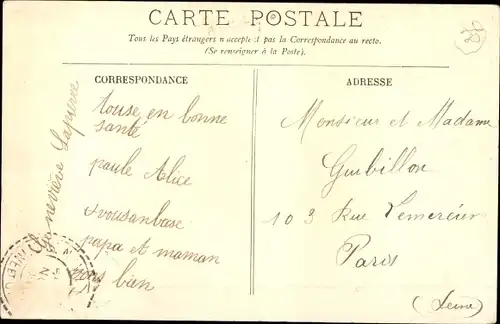 CARTE POSTALE
Tous les Pays étrangers n'acceptent pas la Correspondance au recto.
(Se renseigner à la Poste).
CORRESPONDANCE
touse en bonne
santé
paule Alice
vousanbase
papa et maman
bien
Geneviève
ADRESSE
Monsieur et Madame
Guibillon
103 Rue Lemercier
Paris
(Seine)